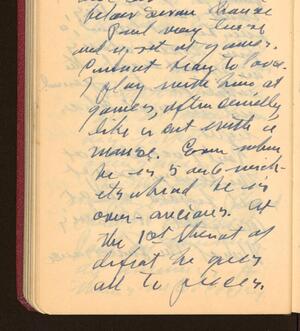 Paul very tense
and upset at games.
Cannot bear to lose.
I play with him at
games, often cruelly,
like a cat with a
mouse. Even when
he is 5 or 6 wick-
ets ahead he is
over-anxious. At
the 1st threat of
defeat he goes
all to pieces.